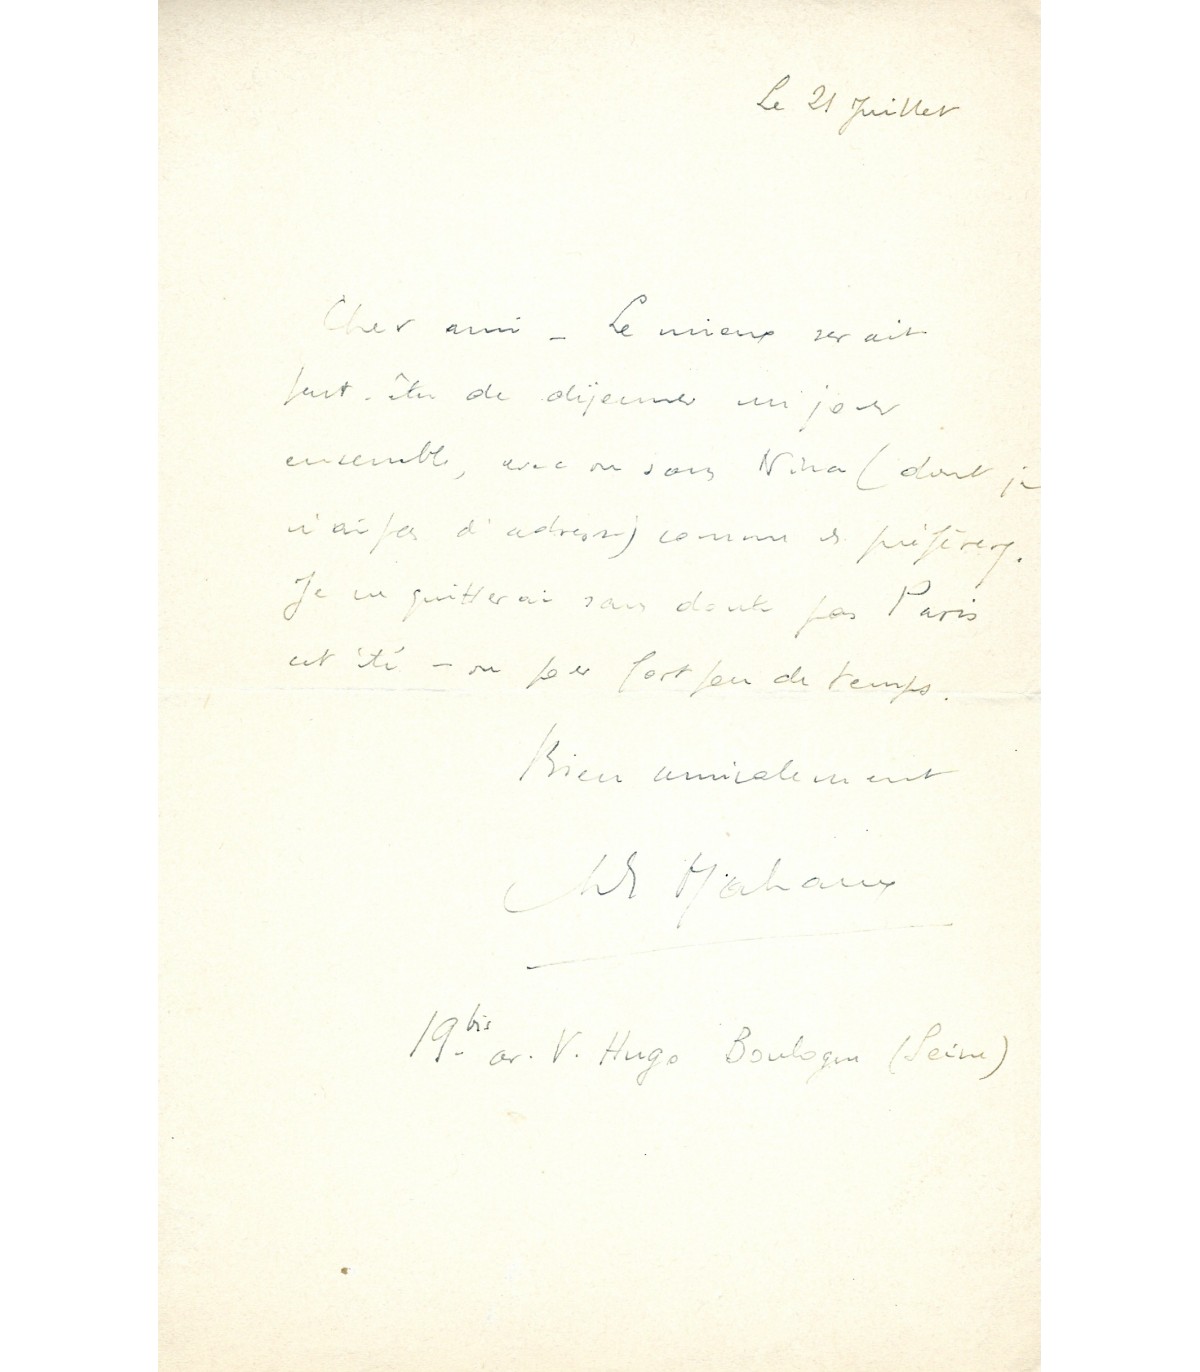 Le 21 Juillet
Cher ami – Le mieux serait
peut-être de déjeuner un jour
ensemble, avec ou sans Nina (dont je
n'ai pas d'adresse) comme préférez.
Je ne quitterai sans doute pas Paris
cet été – ou pour fort peu de temps.
Bien amicalement
Malraux
19 bis av. V. Hugo Boulogne (Seine)